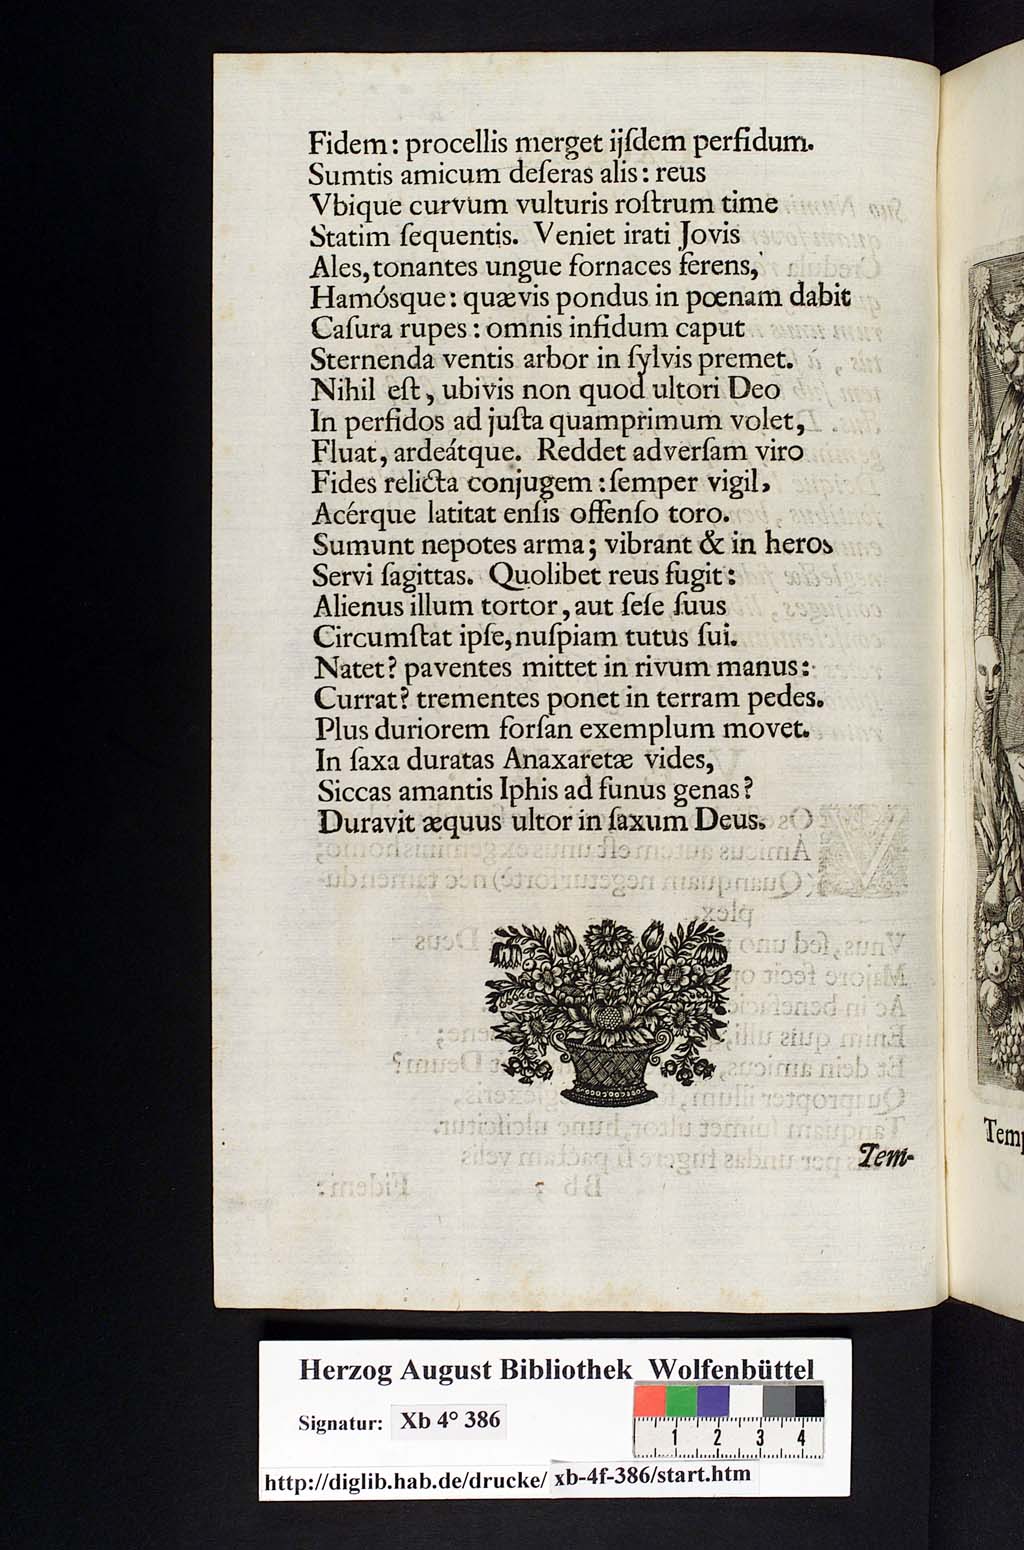 Fidem: procellis merget ijſdem perfidum.
Sumtis amicum deſeras alis: reus
Vbique curvum vulturis roſtrum time
Statim ſequentis. Veniet irati Jovis
Ales, tonantes ungue fornaces ferens,
Hamósque: quævis pondus in pœnam dabit
Caſura rupes: omnis infidum caput
Sternenda ventis arbor in ſylvis premet.
Nihil eſt, ubivis non quod ultori Deo
In perfidos ad juſta quamprimum volet,
Fluat, ardeátque. Reddet adverſam viro
Fides relicta conjugem: ſemper vigil,
Acérque latitat enſis offenſo toro.
Sumunt nepotes arma; vibrant & in heros
Servi ſagittas. Quolibet reus fugit:
Alienus illum tortor, aut ſeſe ſuus
Circumſtat ipſe, nuſpiam tutus ſui.
Natet? paventes mittet in rivum manus:
Currat? trementes ponet in terram pedes.
Plus duriorem forſan exemplum movet.
In ſaxa duratas Anaxaretæ vides,
Siccas amantis Iphis ad funus genas?
Duravit æquus ultor in ſaxum Deus.
Tem-
Temp
Herzog August Bibliothek Wolfenbüttel
Signatur: Xb 4° 386
1 2 3 4
http://diglib.hab.de/drucke/ xb-4f-386/start.htm